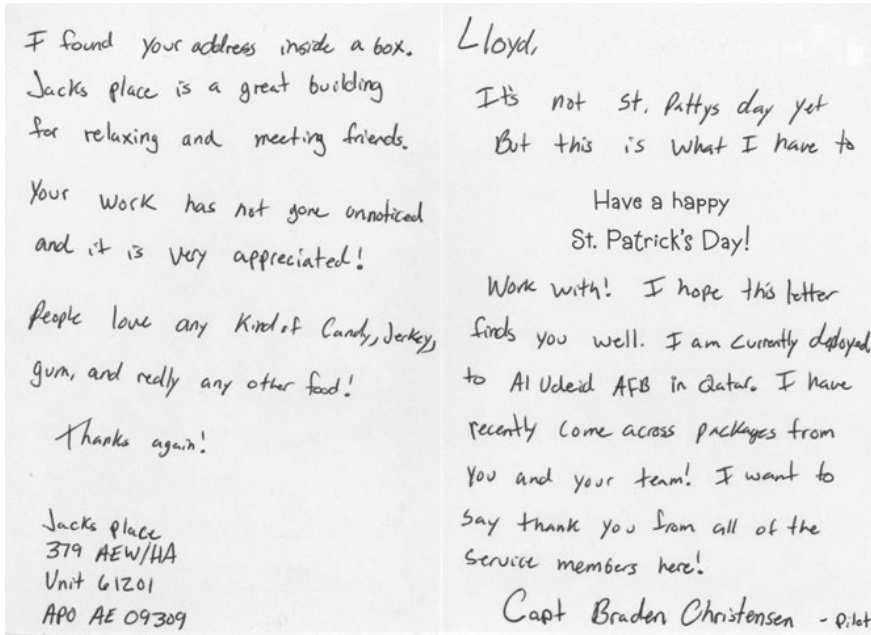 I found your address inside a box.
Jacks place is a great building
for relaxing and meeting friends.
Your work has not gone unnoticed
and it is very appreciated!
People love any kind of candy, Jerkey,
gum, and really any other food!
Thanks again!
Jacks place
379 AEW/HA
Unit 61201
APO AE 09309
Lloyd,
It's not St. Pattys day yet
But this is what I have to
Have a happy
St. Patrick's Day!
Work with! I hope this letter
finds you well. I am currently deployed
to Al Udeid AFB in Qatar. I have
recently come across packages from
you and your team! I want to
say thank you from all of the
service members here!
Capt Braden Christensen - Pilot